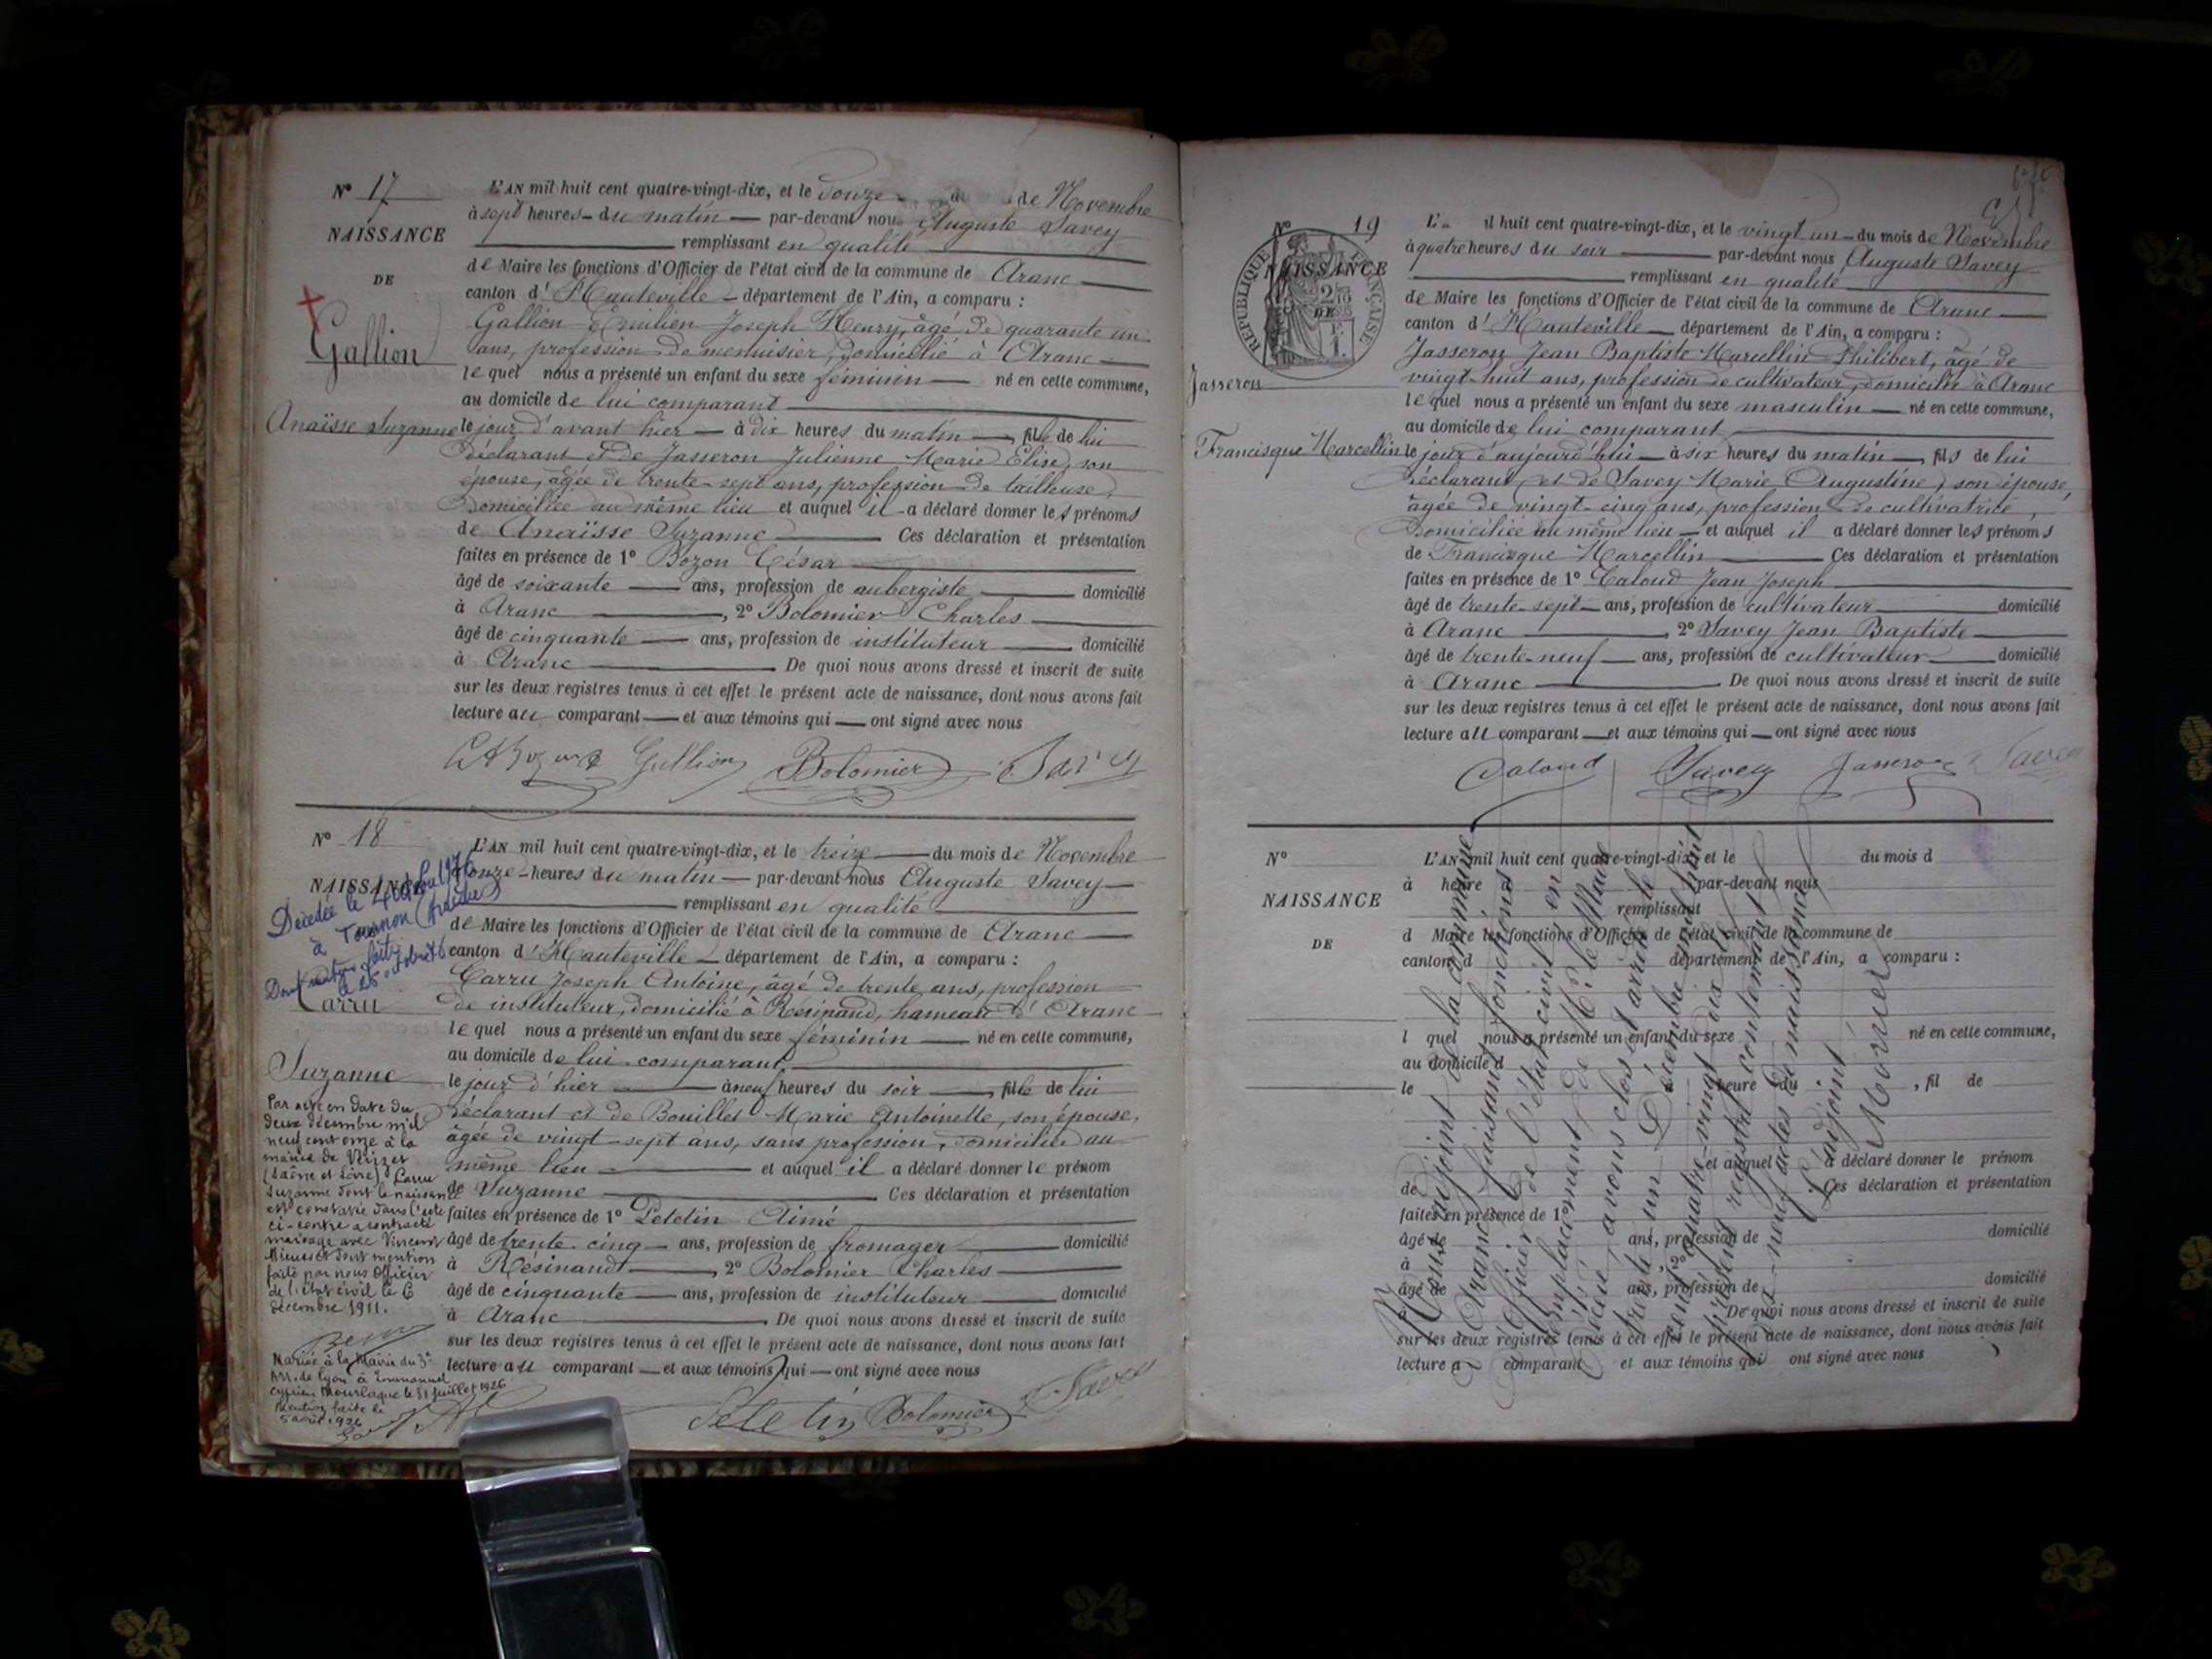 N° 17
NAISSANCE
DE
Gallion
Anaïsse Suzanne
L'AN mil huit cent quatre-vingt-dix, et le douze de Novembre
à sept heures du matin — par-devant nous Auguste Savey
remplissant en qualité
de Maire les fonctions d'Officier de l'état civil de la commune de Aranc
canton d'Hauteville — département de l'Ain, a comparu :
Gallion Emilien Joseph Henry, âgé de quarante un
ans, profession de menuisier, domicilié à Aranc
lequel nous a présenté un enfant du sexe féminin — né en cette commune,
au domicile de lui comparant
le jour d'avant hier — à dix heures du matin —, fille de lui
déclarant et de Jasseron Julienne Marie Elise, son
épouse, âgée de trente-sept ans, profession de tailleuse,
domiciliée au même lieu et auquel il a déclaré donner les prénoms
de Anaïsse Suzanne — Ces déclaration et présentation
faites en présence de 1° Bozon César
âgé de soixante — ans, profession de aubergiste — domicilié
à Aranc —, 2° Bolomier Charles
âgé de cinquante — ans, profession de instituteur — domicilié
à Aranc — De quoi nous avons dressé et inscrit de suite
sur les deux registres tenus à cet effet le présent acte de naissance, dont nous avons fait
lecture au comparant — et aux témoins qui — ont signé avec nous
Gallion Bolomier Savey
N° 18
NAISSANCE
Décédée le 1976
à Tournon (Ardèche)
Carru
Suzanne
Par acte en date du
deux décembre mil
neuf cent onze à la
mairie de Verizet
(Saône et Loire) Carru
Suzanne dont la naissance
est constatée dans l'acte
ci-contre a contracté
mariage avec Vincent
dont mention
faite par nous Officier
de l'état civil le 6
décembre 1911.
Mariée à la Mairie du 3e
Arr. de Lyon à Emmanuel
Cyprien Mourlaque le 31 juillet 1926
Mention faite le
5 août 1926
L'AN mil huit cent quatre-vingt-dix, et le treize — du mois de Novembre
onze heures du matin — par-devant nous Auguste Savey
remplissant en qualité
de Maire les fonctions d'Officier de l'état civil de la commune de Aranc
canton d'Hauteville — département de l'Ain, a comparu :
Carru Joseph Antoine, âgé de trente ans, profession
de instituteur, domicilié à Résinand, hameau d'Aranc
lequel nous a présenté un enfant du sexe féminin — né en cette commune,
au domicile de lui comparant
le jour d'hier — à neuf heures du soir —, fille de lui
déclarant et de Bouillet Marie Antoinette, son épouse,
âgée de vingt-sept ans, sans profession, domiciliée au
même lieu — et auquel il a déclaré donner le prénom
de Suzanne — Ces déclaration et présentation
faites en présence de 1° Peletin Aimé
âgé de trente-cinq — ans, profession de fromager — domicilié
à Résinand —, 2° Bolomier Charles
âgé de cinquante — ans, profession de instituteur — domicilié
à Aranc — De quoi nous avons dressé et inscrit de suite
sur les deux registres tenus à cet effet le présent acte de naissance, dont nous avons fait
lecture au comparant — et aux témoins qui — ont signé avec nous
Peletin Bolomier Savey
N° 19
NAISSANCE
DE
REPUBLIQUE FRANÇAISE
Jasseron
Francisque Marcellin
il huit cent quatre-vingt-dix, et le vingt un — du mois de Novembre
à quatre heures du soir — par-devant nous Auguste Savey
remplissant en qualité
de Maire les fonctions d'Officier de l'état civil de la commune de Aranc
canton d'Hauteville — département de l'Ain, a comparu :
Jasseron Jean Baptiste Marcellin Philibert, âgé de
vingt-huit ans, profession de cultivateur, domicilié à Aranc
lequel nous a présenté un enfant du sexe masculin — né en cette commune,
au domicile de lui comparant
le jour d'aujourd'hui — à six heures du matin —, fils de lui
déclarant et de Savey Marie Augustine, son épouse,
âgée de vingt-cinq ans, profession de cultivatrice,
domiciliée au même lieu — et auquel il a déclaré donner les prénoms
de Francisque Marcellin — Ces déclaration et présentation
faites en présence de 1° Caloud Jean Joseph
âgé de trente-sept — ans, profession de cultivateur — domicilié
à Aranc —, 2° Savey Jean Baptiste
âgé de trente-neuf — ans, profession de cultivateur — domicilié
à Aranc — De quoi nous avons dressé et inscrit de suite
sur les deux registres tenus à cet effet le présent acte de naissance, dont nous avons fait
lecture au comparant — et aux témoins qui — ont signé avec nous
Caloud Savey Jasseron Savey
N°
NAISSANCE
DE
L'AN mil huit cent quatre-vingt-dix, et le du mois d
à heure par-devant nous
remplissant
d Maire les fonctions d'Officier de l'état civil de la commune de
canton d département de l'Ain, a comparu :
l quel nous a présenté un enfant du sexe né en cette commune,
au domicile d
le heure du , fil de
et auquel a déclaré donner le prénom
de Ces déclaration et présentation
faites en présence de 1°
âgé de ans, profession de domicilié
à , 2°
âgé de ans, profession de domicilié
à De quoi nous avons dressé et inscrit de suite
sur les deux registres tenus à cet effet le présent acte de naissance, dont nous avons fait
lecture a comparant et aux témoins qui ont signé avec nous
Nous adjoint de la commune
d'Aranc, faisant fonctions
d'Officier de l'état civil en
remplacement de Mr le Maire
avons clos et arrêté le
trente un Décembre mil huit
cent quatre-vingt dix le
présent registre contenant
dix-neuf actes de naissance
L'adjoint